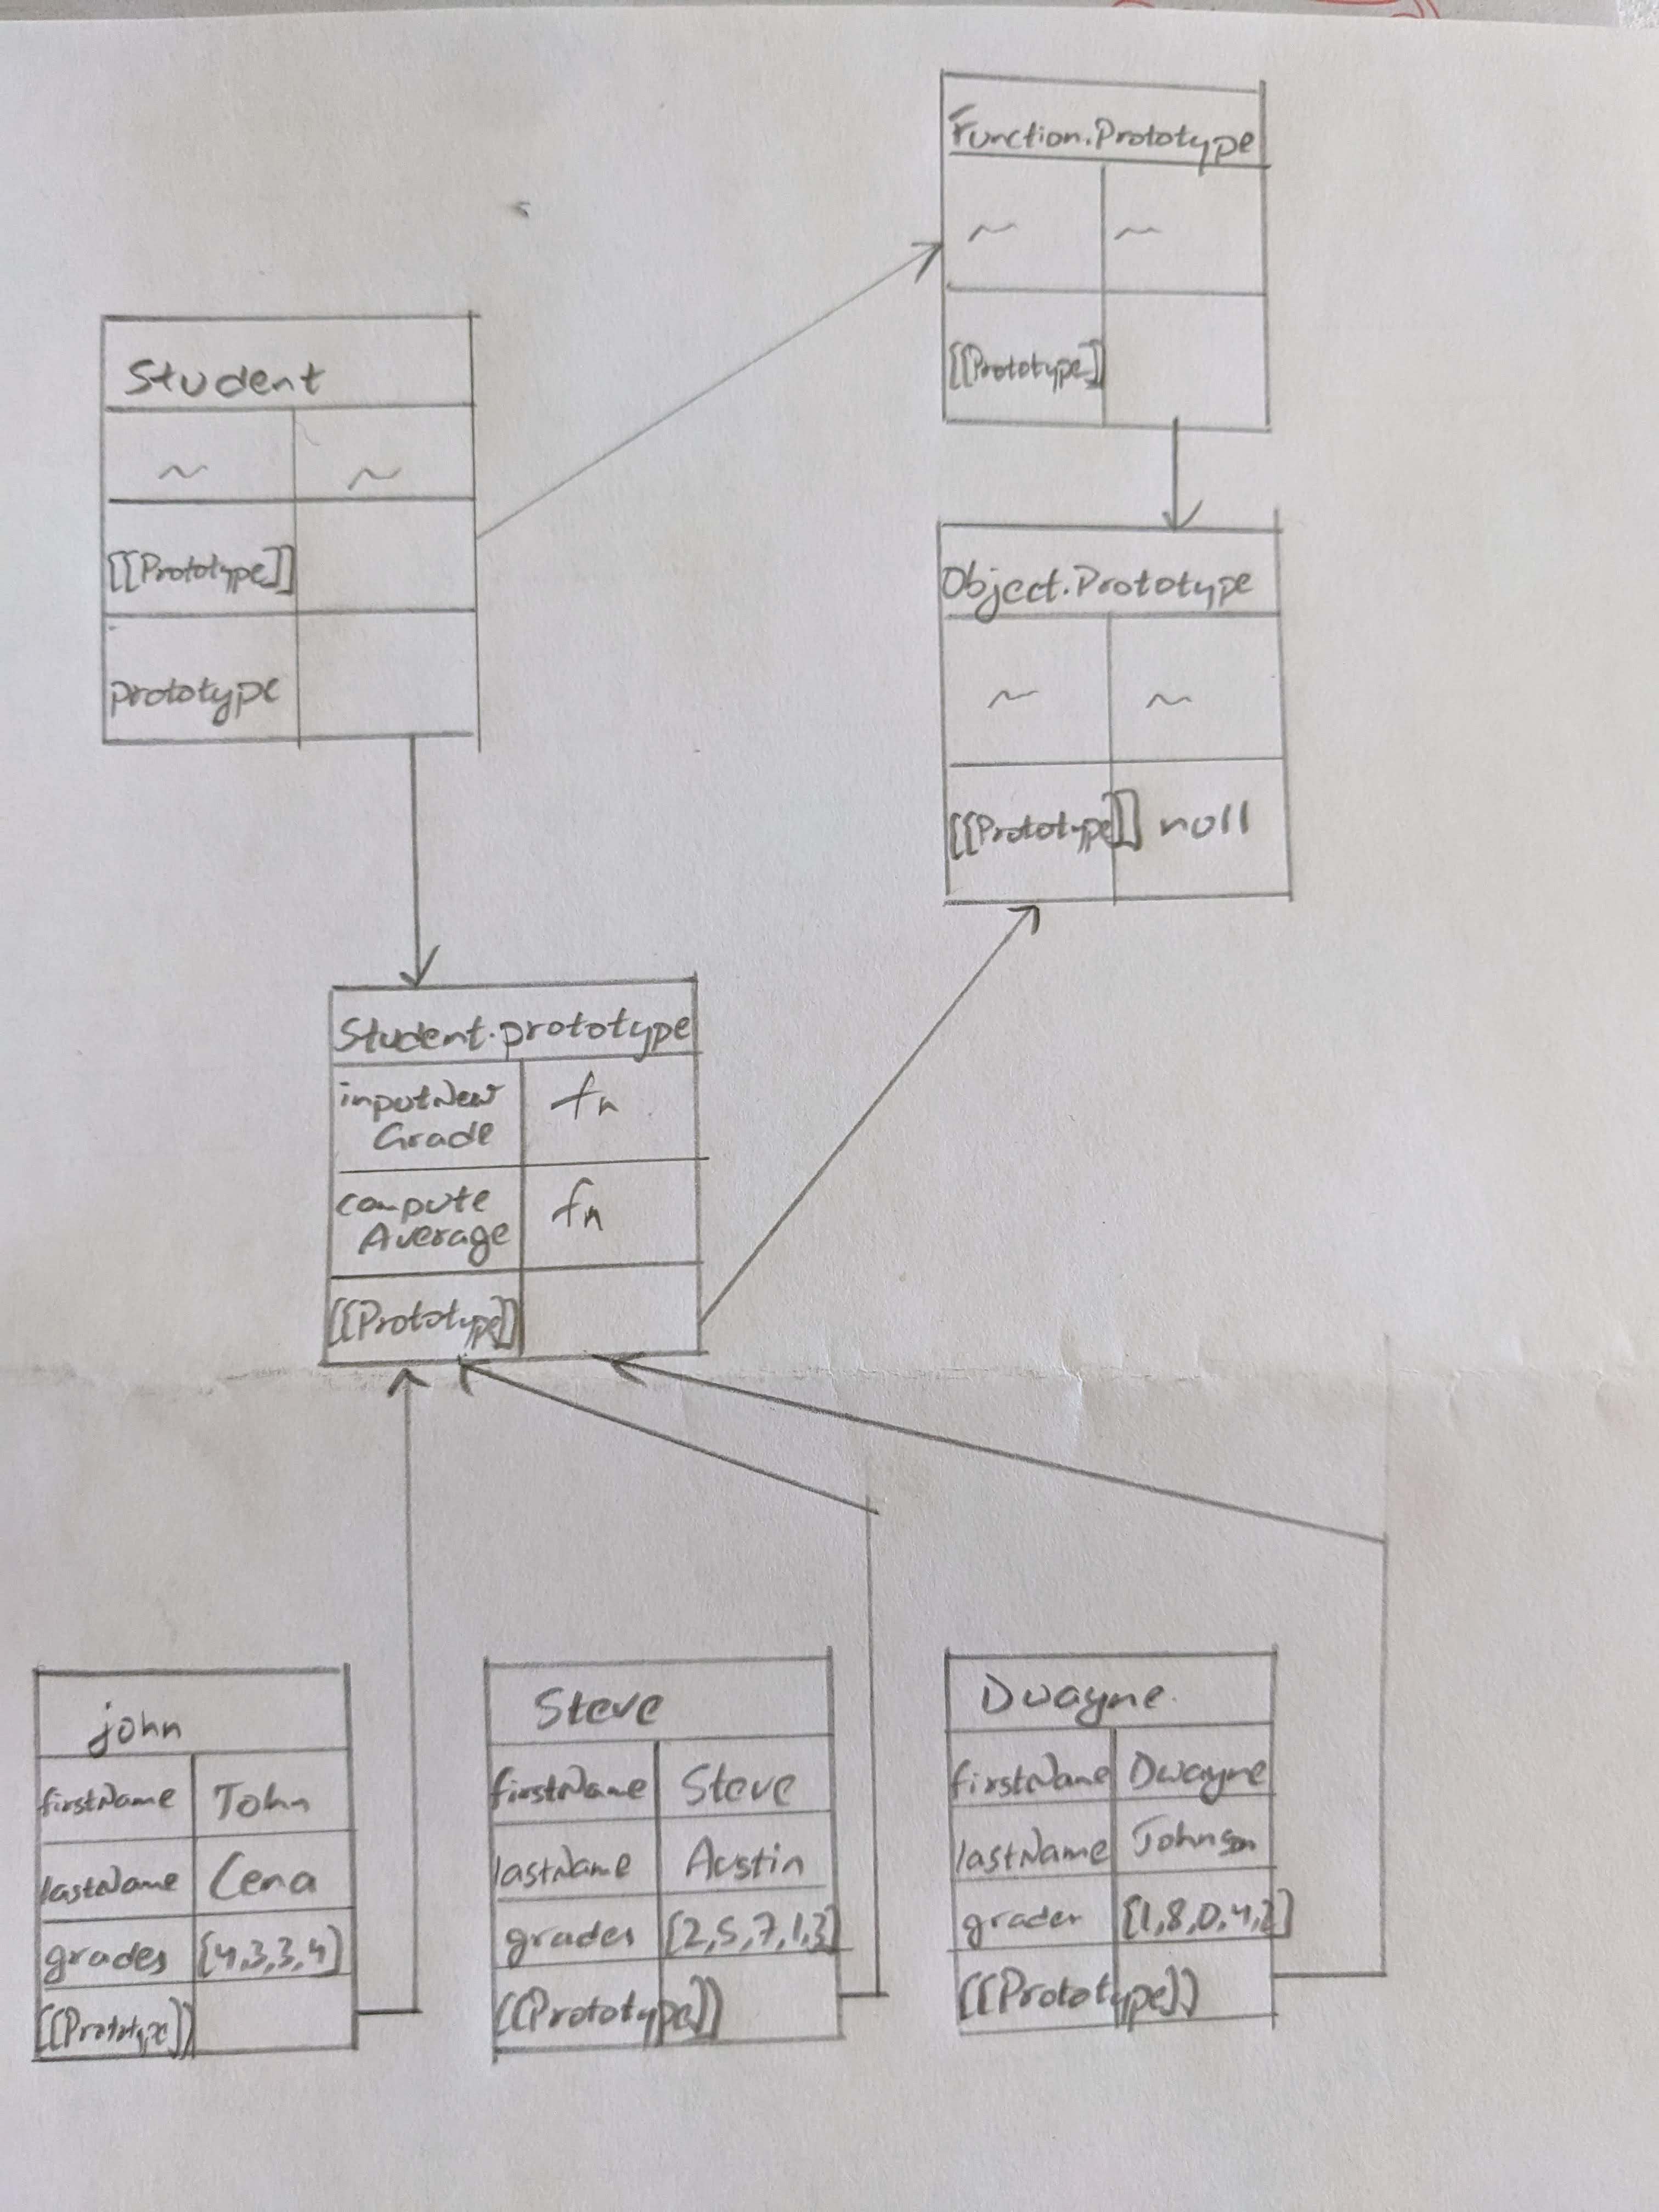 Function.Prototype
~ ~
[[Prototype]]
Student
~ ~
[[Prototype]]
prototype
Object.Prototype
~ ~
[[Prototype]] null
Student.prototype
inputNew fn
Grade
compute fn
Average
[[Prototype]]
john
firstName John
lastName Cena
grades [4,3,3,4]
[[Prototype]]
Steve
firstName Steve
lastName Austin
grades [2,5,7,1,3]
[[Prototype]]
Dwayne
firstName Dwayne
lastName Johnson
grades [1,8,0,4,2]
[[Prototype]]